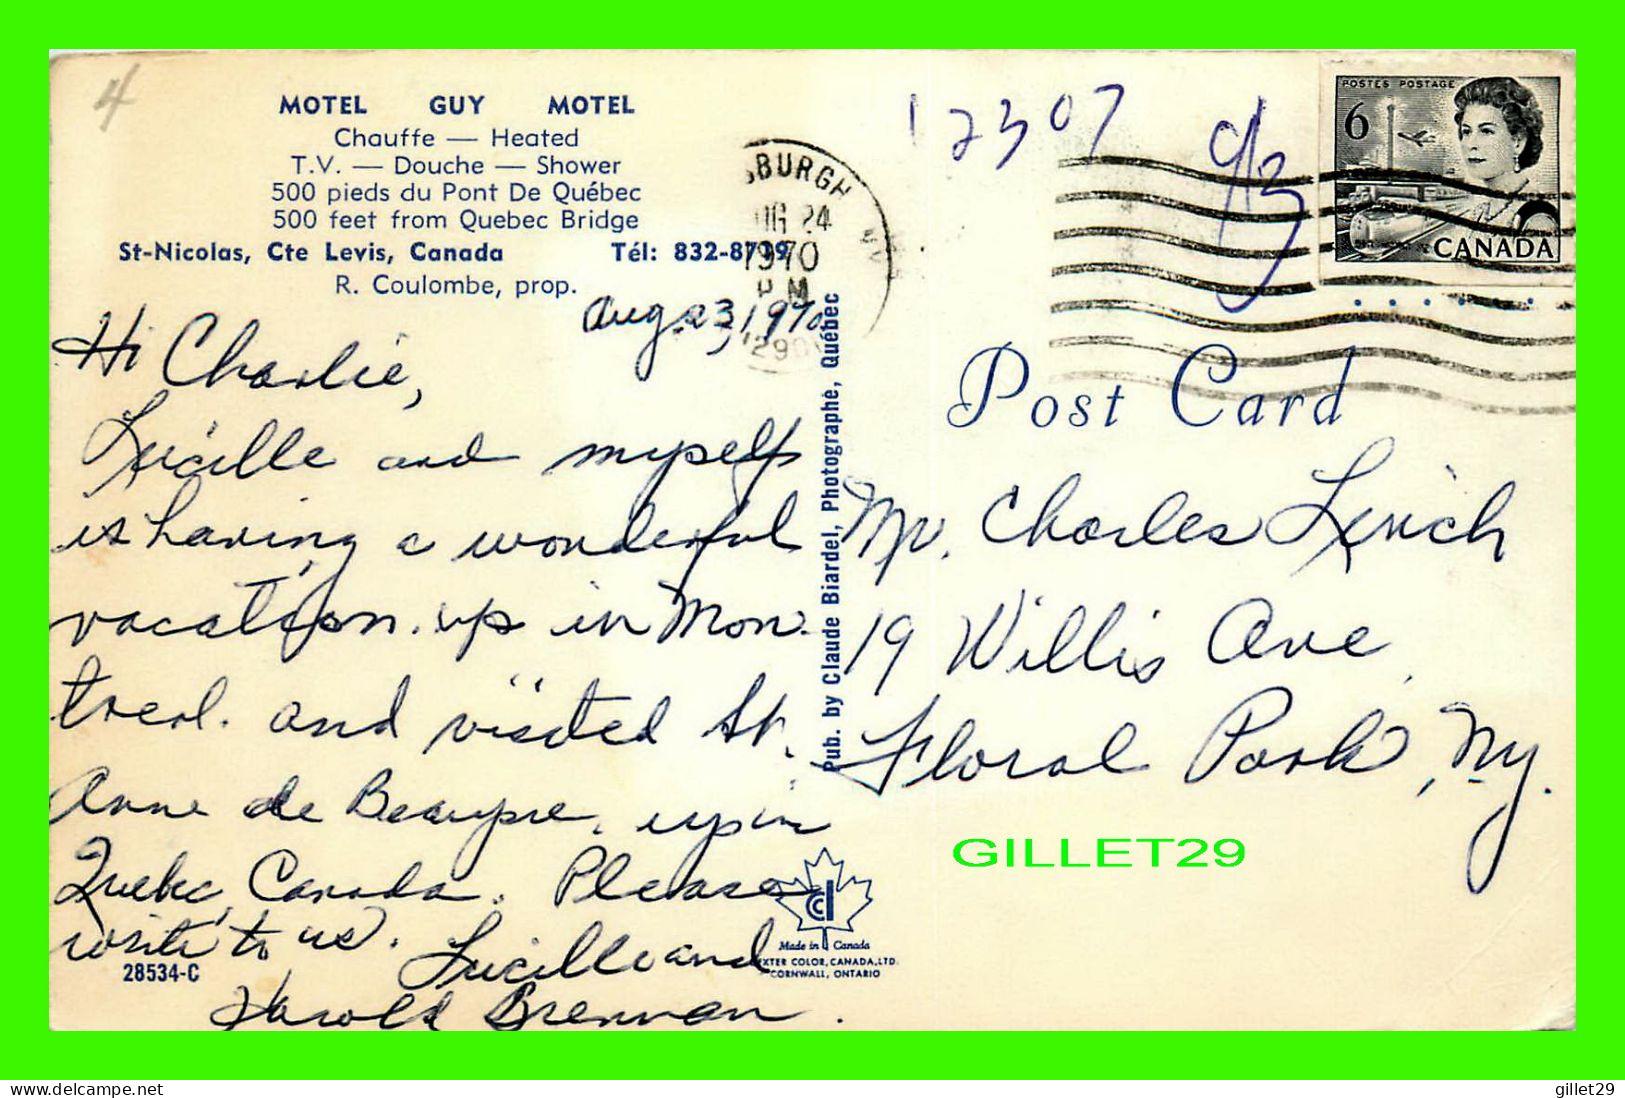 4
MOTEL GUY MOTEL
Chauffe — Heated
T.V. — Douche — Shower
500 pieds du Pont De Québec
500 feet from Quebec Bridge
St-Nicolas, Cte Levis, Canada Tél: 832-8799
R. Coulombe, prop.
SBURGH NY
24
1970
PM
Aug. 23, 1970
Hi Charlie,
Lucille and myself
is having a wonderful
vacation. up in Mon-
treal. and visited St.
Anne de Beaupre. up in
Quebec, Canada. Please
write to us. Lucille and
Harold Brennan.
28534-C
Pub. by Claude Biardel, Photographe, Québec
Made in Canada
EXTER COLOR, CANADA, LTD.
CORNWALL, ONTARIO
12307
POSTES POSTAGE
6
CANADA
Post Card
Mr. Charles Lerich
19 Willis Ave
Floral Park, N.Y.
GILLET29
http://www.delcampe.net
gillet29